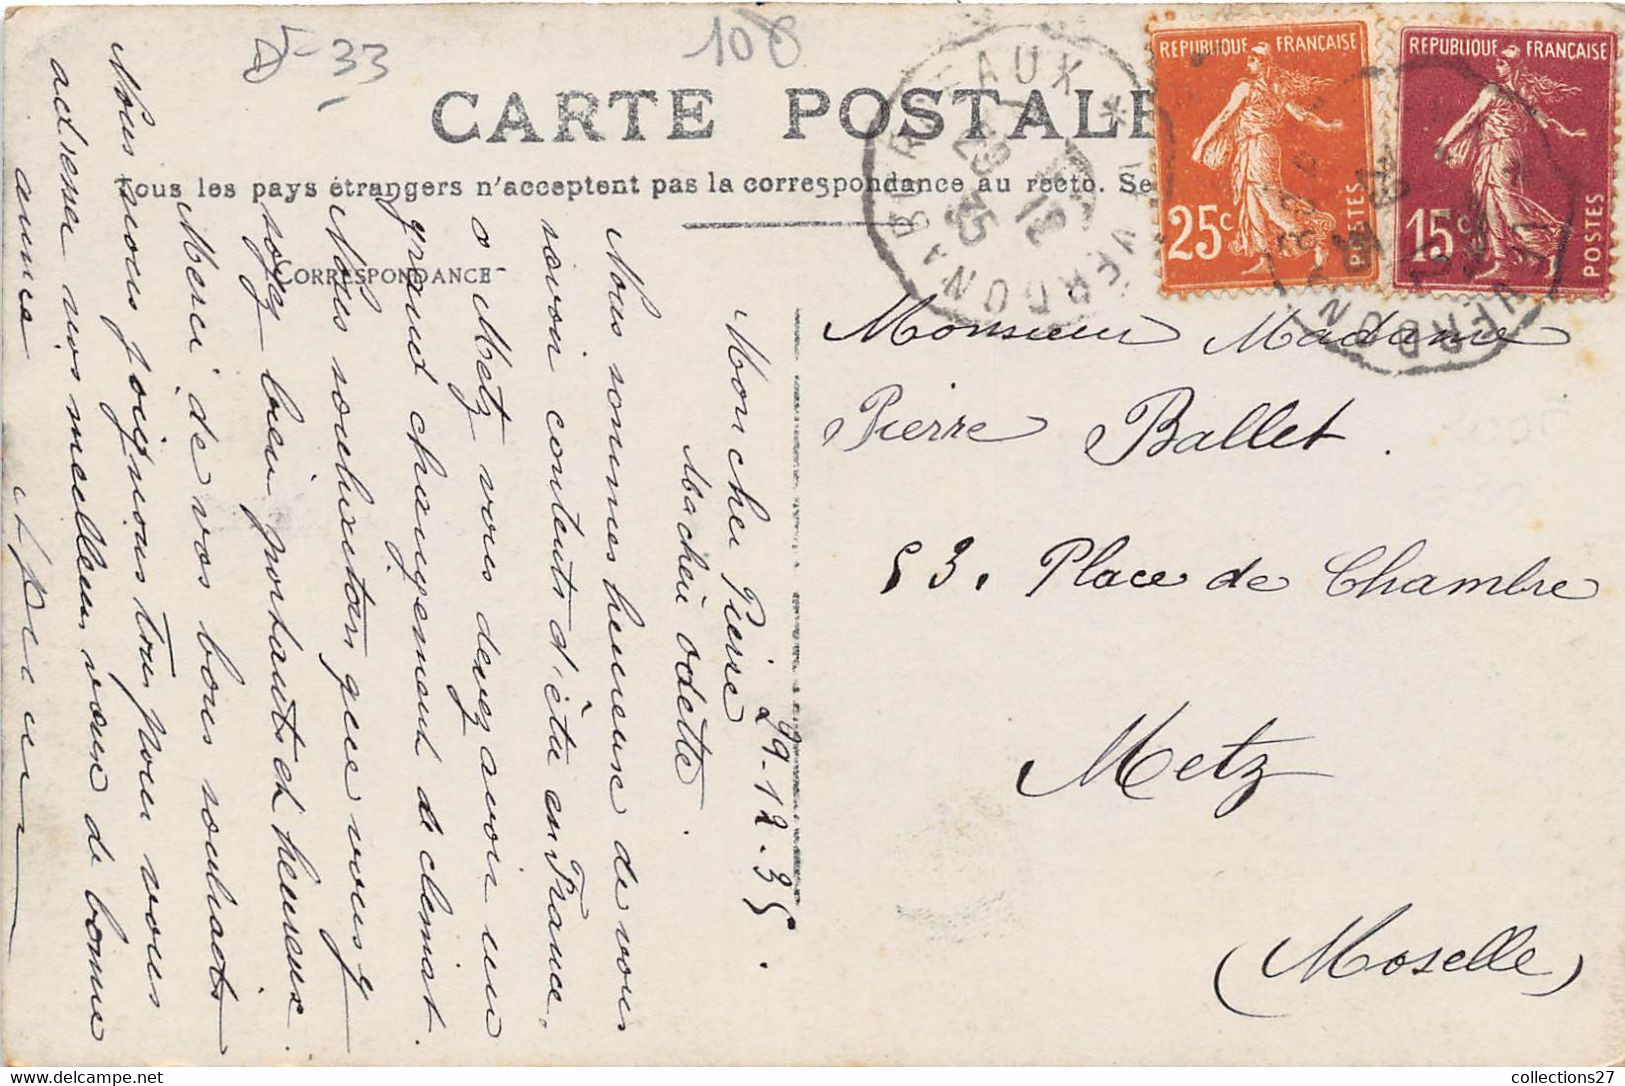 D-33
108
CARTE POSTALE
Tous les pays étrangers n'acceptent pas la correspondance au recto. Se
CORRESPONDANCE
BORDEAUX * A VERDON
29
12
35
REPUBLIQUE FRANÇAISE
25c
POSTES
REPUBLIQUE FRANÇAISE
15c
POSTES
Monsieur Madame
Pierre Ballet.
53, Place de Chambre
Metz
(Moselle)
29-12-35.
Mon cher Pierre
Ma cheu odette.
Nous sommes heureuse de vous
savoir contents d'être en France,
a Metz vous devez avoir un
grand changement de climat.
Nous souhaiton que vous
soyez bien portants et heureux.
Merci de vos bons souhaits
Nous nous joignons tous pour vous
adresser nos meilleurs vœux de bonne
année
collections27